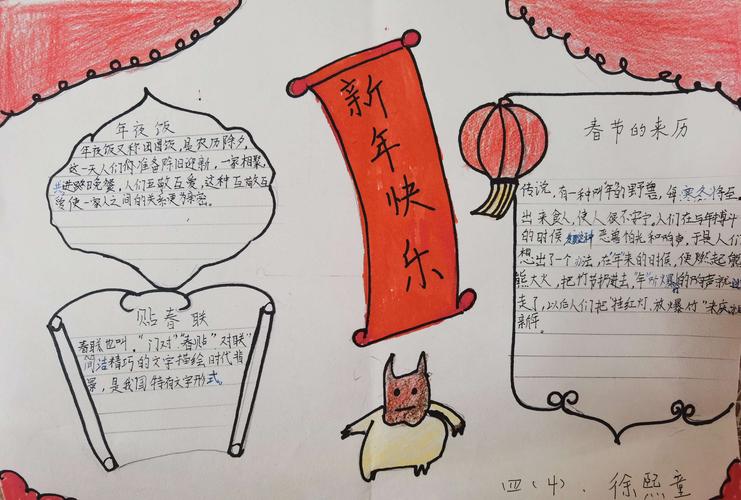 年夜饭
年夜饭又称团圆饭,是农历除夕,
这一天人们都准备除旧迎新,一家相聚,
共进晚餐,人们互敬互爱,这种互敬互
爱使一家人之间的关系更为亲密。
贴春联
春联也叫“门对”“春贴”对联”
简洁精巧的文字描绘时代背
景,是我国特有文字形式。
新年快乐
春节的来历
传说,有一种叫年的野兽,每寒冬将至
出来食人,使人很不安宁。人们在与年搏斗
的时候 恶兽怕光和响声,于是人们
想出了一个办法,在年来的时候,使燃起熊
熊大火,把竹节扔进去,“年”听爆的响声就
走了,以后人们把“挂红灯,放爆竹”来庆
新年。
四(4).徐熙童